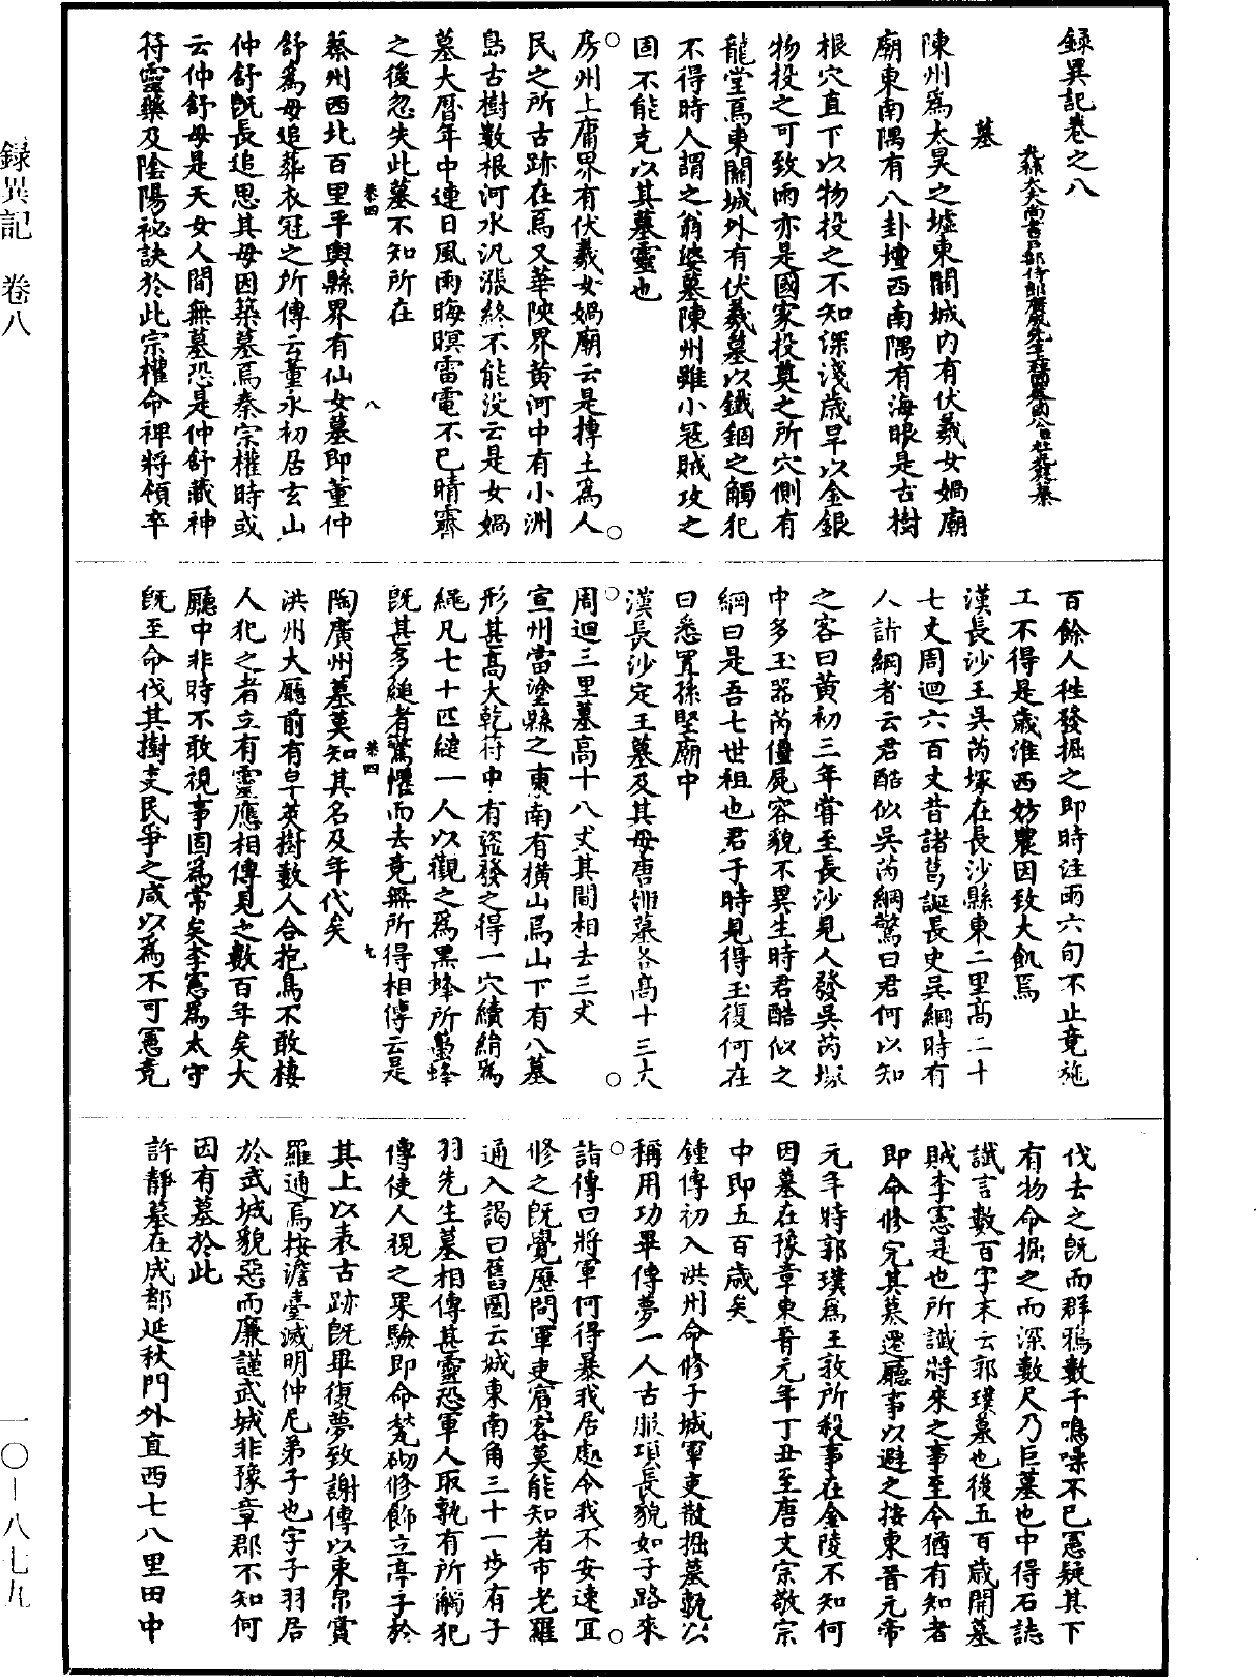 録異記卷之八
光祿大夫尚書戶部侍郎廣成先生上柱國蔡國公臣杜光庭纂
墓
陳州爲太昊之墟東關城內有伏羲女媧廟
廟東南隅有八卦壇西南隅有海眼是古樹
根穴直下以物投之不知深淺歲旱以金銀
物投之可致雨亦是國家投奠之所穴側有
龍堂焉東關城外有伏羲墓以鐵錮之觸犯
不得時人謂之翁婆墓陳州雖小寇賊攻之
固不能克以其墓靈也
房州上庸界有伏羲女媧廟云是摶土爲人
民之所古跡在焉又華陝界黃河中有小洲
島古樹數根河水汎漲終不能没云是女媧
墓大曆年中連日風雨晦暝雷電不已晴霽
之後忽失此墓不知所在
卷四 八
蔡州西北百里平輿縣界有仙女墓即董仲
舒爲母追葬衣冠之所傳云董永初居玄山
仲舒旣長追思其母因築墓焉秦宗權時或
云仲舒母是天女人間無墓恐是仲舒藏神
符靈藥及陰陽祕訣於此宗權命裨將領卒
百餘人往發掘之即時注雨六旬不止竟施
工不得是歲淮西妨農因致大飢焉
漢長沙王吳芮塚在長沙縣東二里高二十
七丈周迴六百丈昔諸葛誕長史吳綱時有
人訢綱者云君酷似吳芮綱驚曰君何以知
之客曰黃初三年嘗至長沙見人發吳芮塚
中多玉器芮僵屍容貌不異生時君酷似之
綱曰是吾七世祖也君于時見得玉復何在
曰悉置孫堅廟中
漢長沙定王墓及其母唐姬墓各高十三丈
周迴三里墓高十八丈其間相去三丈
宣州當塗縣之東南有橫山焉山下有八墓
形甚高大乾符中有盜發之得一穴續絹爲
繩凡七十匹縋一人以觀之爲黑蜂所螫蜂
旣甚多縋者驚懼而去竟無所得相傳云是
卷四 九
陶廣州墓莫知其名及年代矣
洪州大廳前有皁莢樹數人合抱鳥不敢棲
人犯之者立有靈應相傳見之數百年矣大
廳中非時不敢視事固爲常矣李憲爲太守
旣至命伐其樹吏民爭之咸以爲不可憲竟
伐去之旣而群鴉數千鳴噪不已憲疑其下
有物命掘之而深數尺乃巨墓也中得石誌
讖言數百字末云郭璞墓也後五百歲開墓
賊李憲是也所讖將來之事至今猶有知者
即命修完其墓遷廳事以避之按東晉元帝
元年時郭璞爲王敦所殺事在金陵不知何
因墓在豫章東晉元年丁丑至唐文宗敬宗
中即五百歲矣
鍾傳初入洪州命修子城軍吏散掘墓甎以
稱用功畢傳夢一人古服項長貌如子路來
詣傳曰將軍何得暴我居處令我不安速宜
修之旣覺歷問軍吏賓客莫能知者市老羅
通入謁曰舊圖云城東南角三十一步有子
羽先生墓相傳甚靈恐軍人取甎有所觸犯
傳使人視之果驗即命甃砌修飾立亭子於
其上以表古跡旣畢復夢致謝傳以束帛賞
羅通焉按澹臺滅明仲尼弟子也字子羽居
於武城貌惡而廉謹武城非豫章郡不知何
因有墓於此
許靜墓在成都延秋門外直西七八里田中
録異記 卷八
一〇—八七九